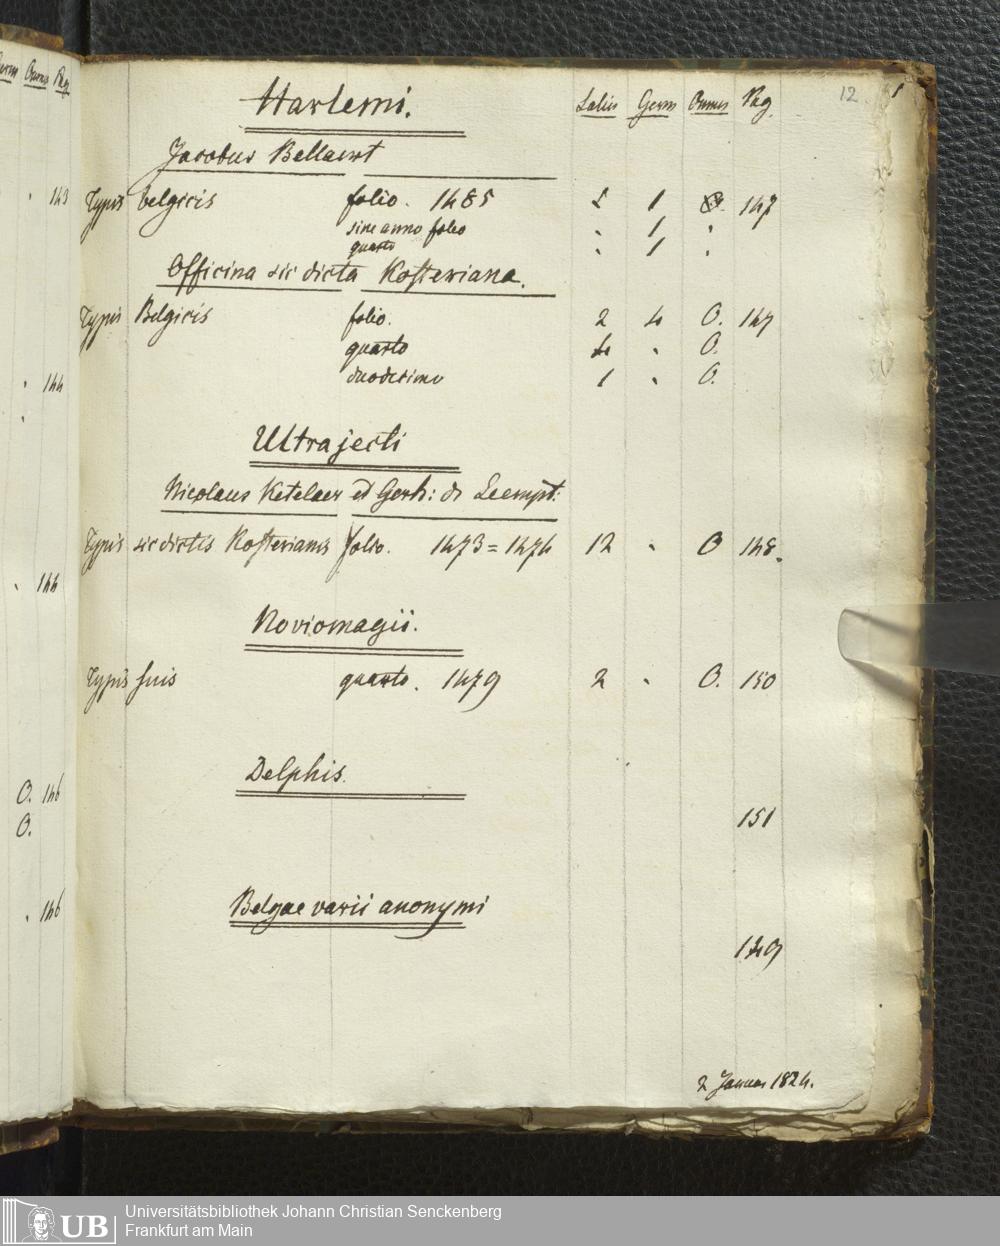 Germ Omnes Pag
143
144
144
O. 146
O.
146
12
Harlemi. Latin Germ Omnes Pag.
Jacobus Bellaert
Typis belgicis folio. 1485 1 147
sine anno folio . 1 .
quarto . 1 .
Officina sic dicta Kosteriana.
Typis Belgicis folio. 2 4 O. 147
quarto 4 . O.
duodecimo 1 . O.
Ultrajecti
Nicolaus Ketelaer et Gerh: de Leempt:
Typis sic dictis Kosterianis folio. 1473 = 1474 12 . O 148.
Noviomagii.
Typis suis quarto. 1479 2 . O. 150
Delphis.
151
Belgae varii anonymi
149
2 Januar 1824.
UB Universitätsbibliothek Johann Christian Senckenberg
Frankfurt am Main